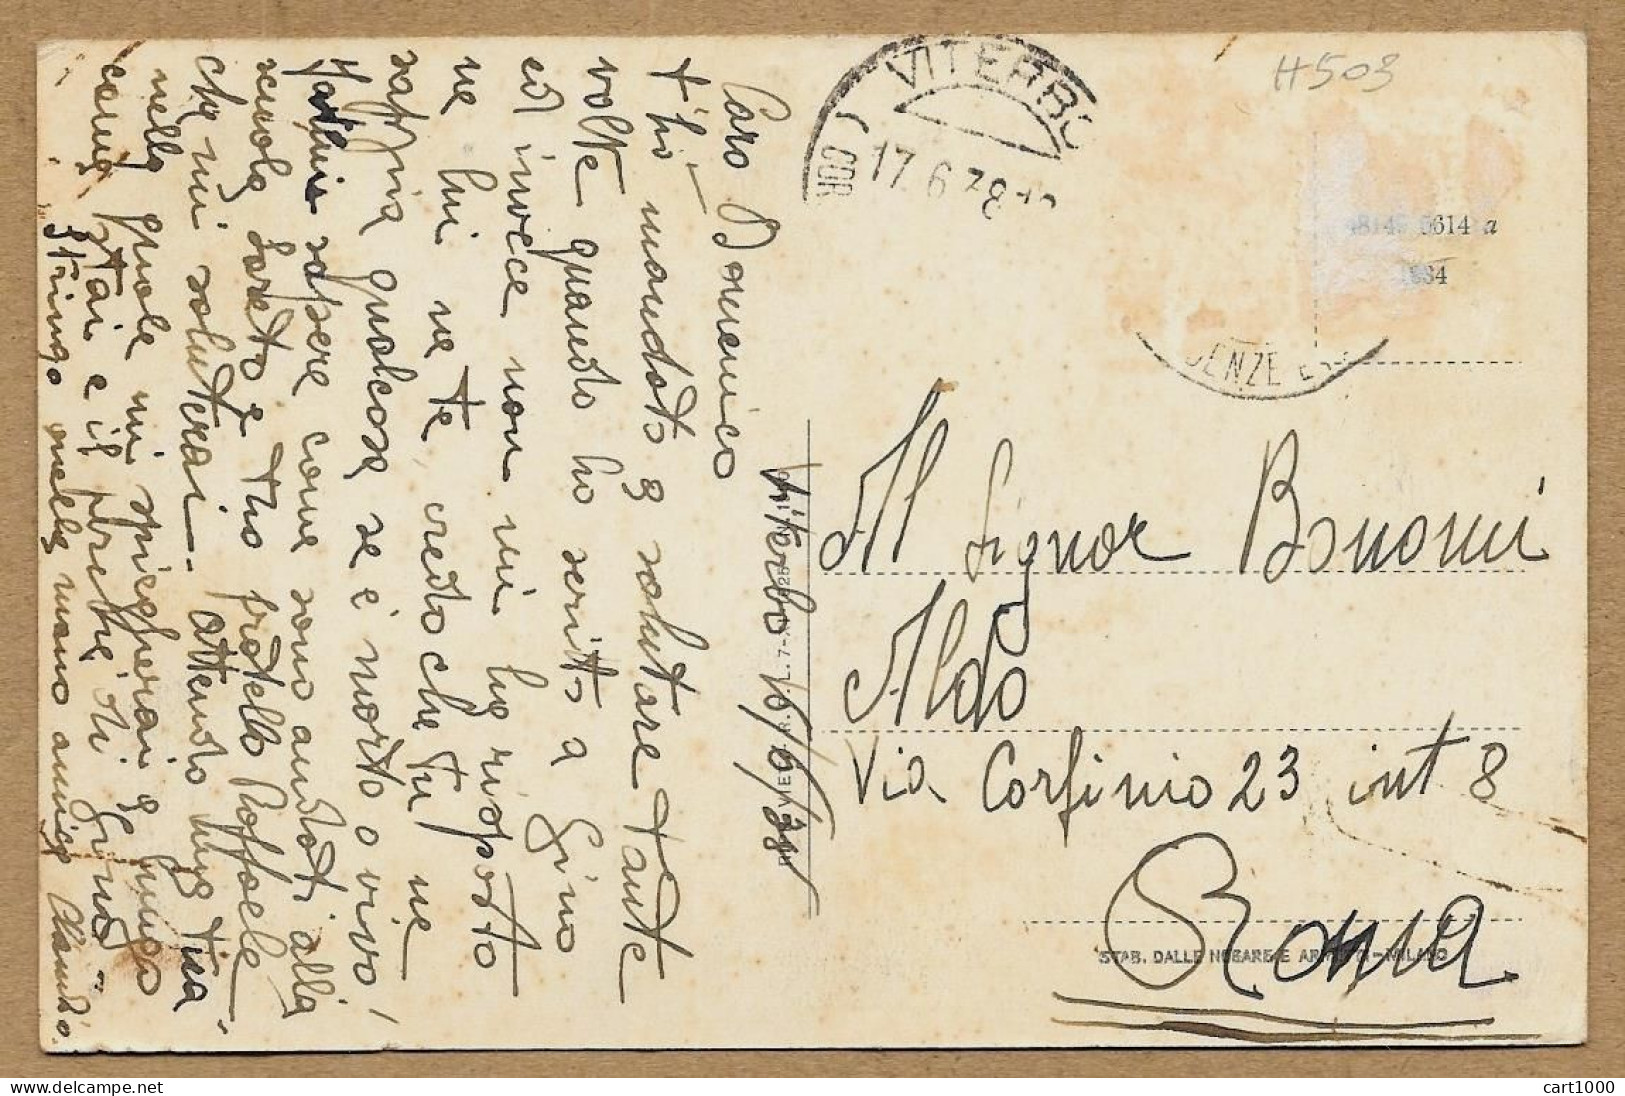 H503
VITERBO
COR
17.6.38
6614 a
DENZE
Viterbo 16/6/38
Caro Domenico
t'ho mandato a salutare tante
volte quando ho scritto a Gino
ed invece non mi ha risposto
ne lui ne te, credo che tu ne
sappia qualcosa se è morto o vivo,
fammi sapere come sono andati alla
scuola Loreto e tuo fratello Raffaele
che mi saluterai. attendo una tua
nella quale mi spiegherai a lungo
come stai e il perché di "Gino"
Stringo nella mano amica
Al Signor Bonomi
Aldo
Via Corfinio 23 int 8
Roma
STAB. DALLE NOGARE E ARMETTI-MILANO
cart1000